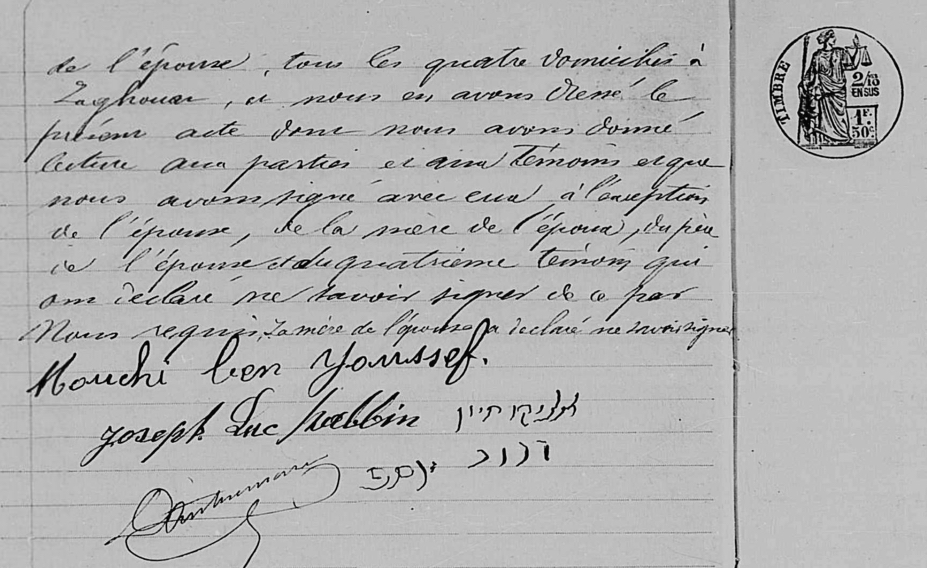 de l'épouse, tous les quatre domiciliés à
Zaghouan, et nous en avons dressé le
présent acte dont nous avons donné
lecture aux parties et aux témoins et que
nous avons signé avec eux, à l'exception
de l'épouse, de la mère de l'époux, du père
de l'épouse et du quatrième témoin qui
ont déclaré ne savoir signer de ce par
Nous requis, La mère de l'épouse a déclaré ne savoir signer
Mouchi ben Youssef.
Joseph Luc
דוד
יוסף
TIMBRE
2/10
EN SUS
1F.
50c